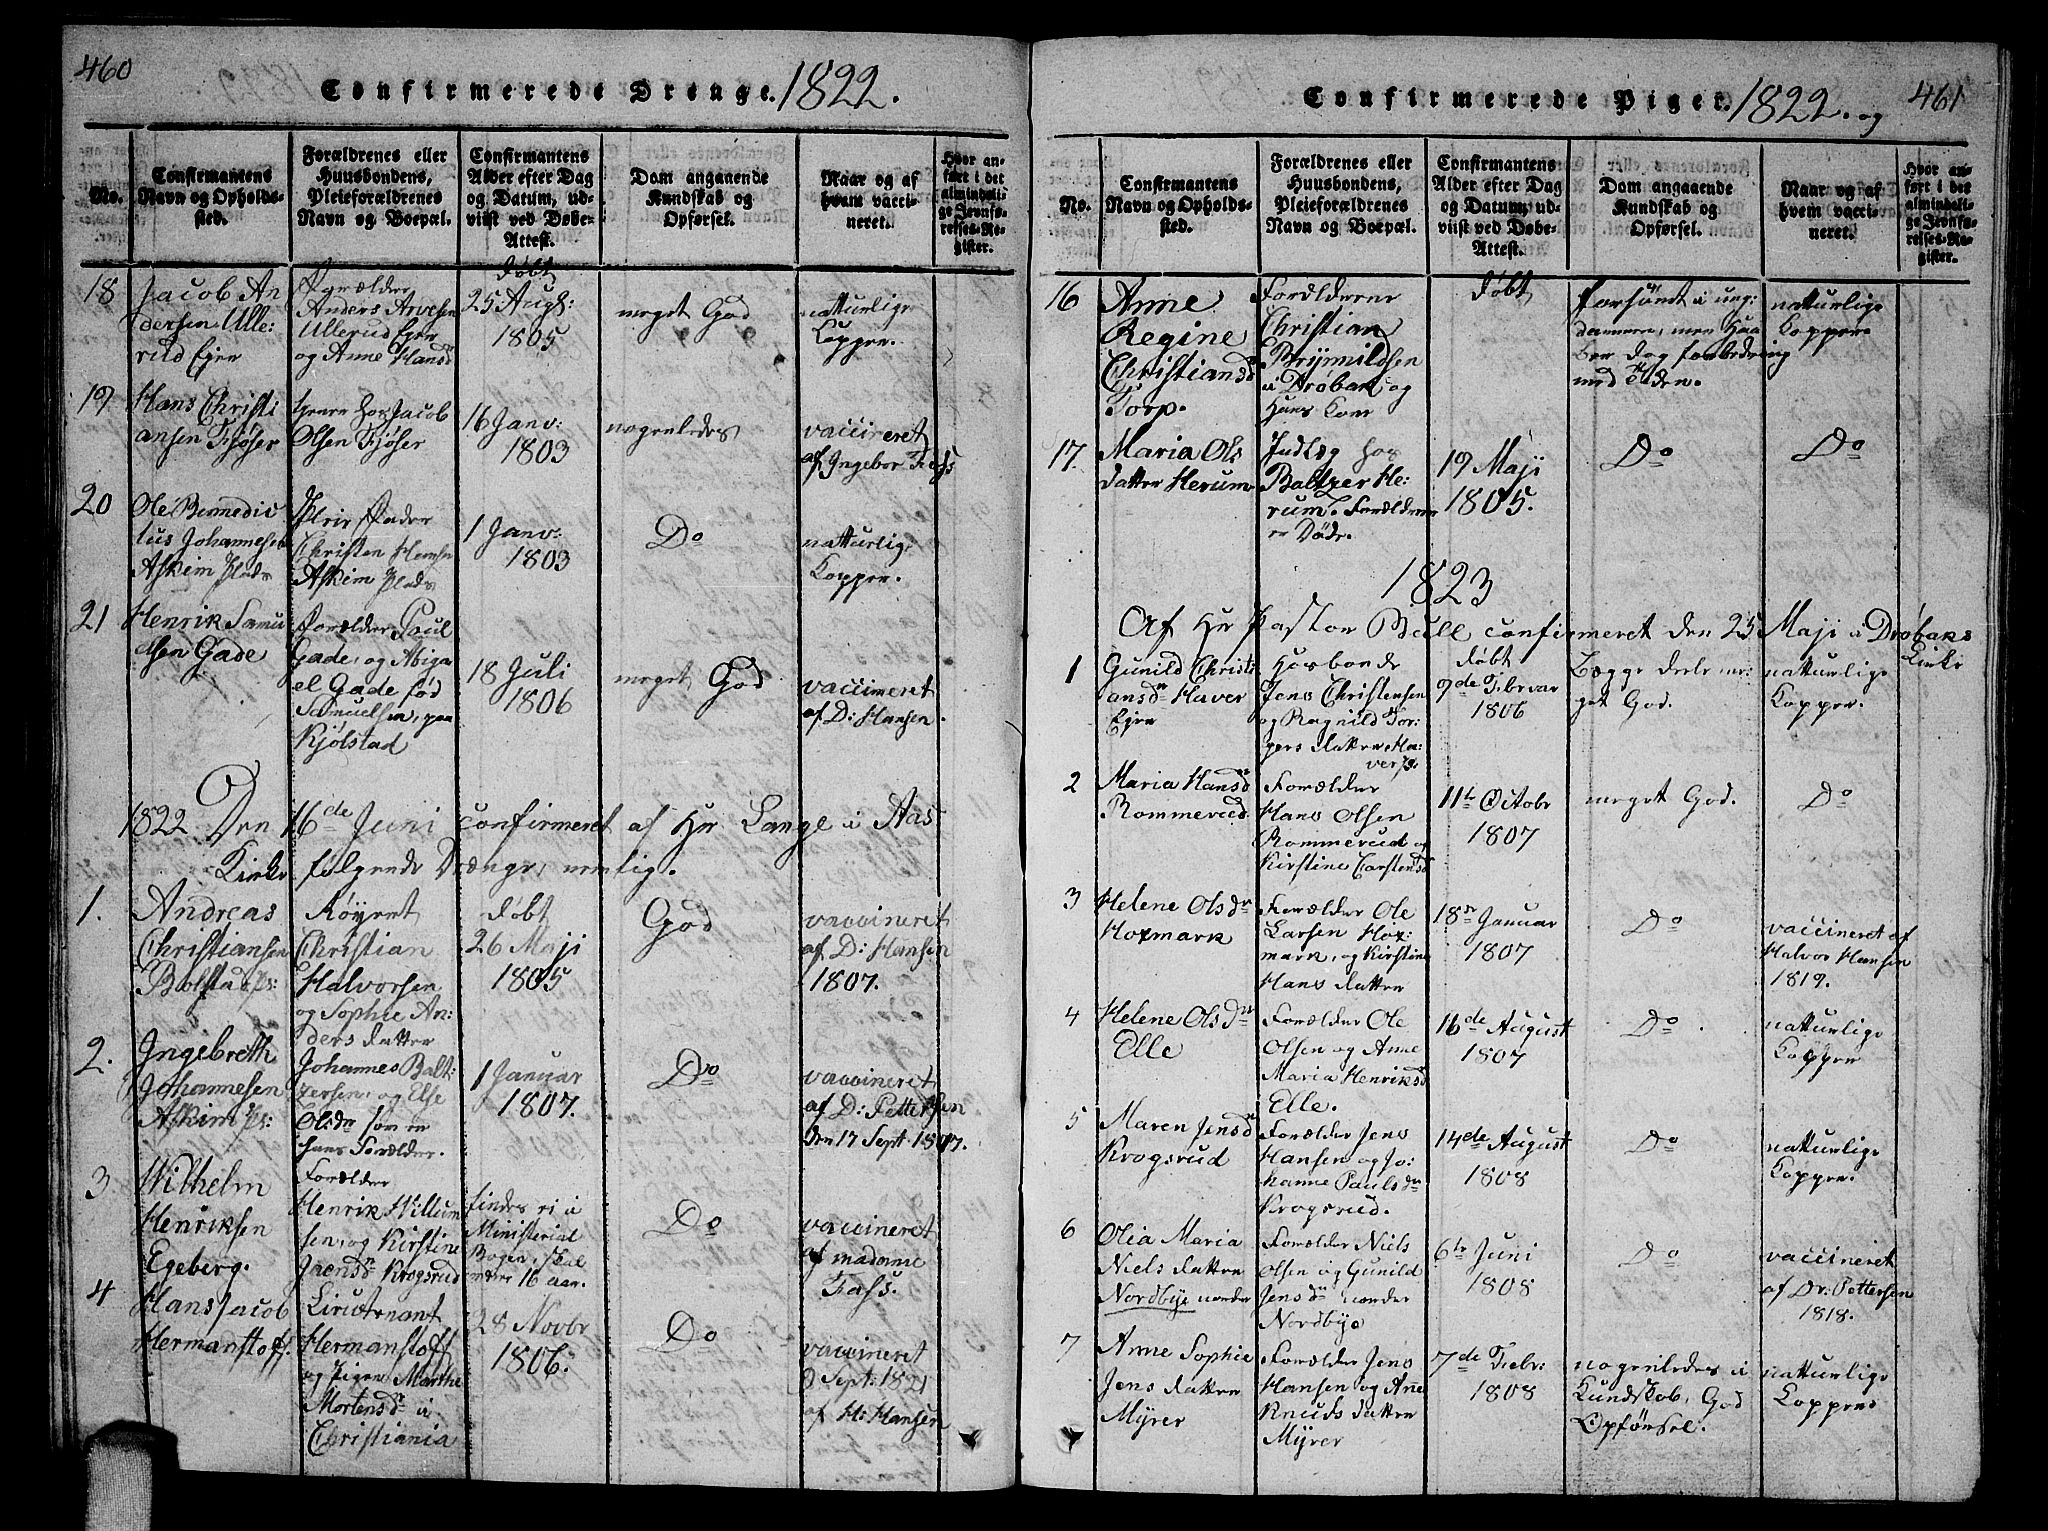 460
Confirmerede Drenge. 1822.
No.
Confirmantens
Navn og Opholds-
sted.
Forældrenes eller
Huusbondens,
Pleieforældrenes
Navn og Boepæl.
Confirmantens
Alder efter Dag
og Datum, ud-
viist ved Døbe-
Attest.
Dom angaaende
Kundskab og
Opførsel.
Naar og af
hvem vacci-
neret.
Hvor an-
ført i det
almindeli-
ge Jevnfø-
relses-Re-
gister.
18
Jacob An
dersen Ulle-
rud Ejer
Forælder
Anders Arvesen
Ullerud Ejer
og Anne Hansdr
døbt
25 Augs:
1805
meget God
naturlige
Kopper.
19
Hans Christi
ansen Fjøser
tjener hos Jacob
Olsen Fjøser
16 Janv:
1803
nogenledes
vaccineret
af Ingebor Fass
20
Ole Bennedic
tus Johannesen
Askim Plads
Pleie Fader
Christen Hansen
Askim Plads
1 Janv:
1803
Do
naturlige
Kopper.
21
Henrik Samu
elsen Gade
Forælder Paul
Gade, og Abiga
el Gade fød
Samuelsen, paa
Kjølstad
18 Juli
1806
meget God
vaccineret
af D: Hansen.
1822 Den 16de Juni confirmeret af Hr Lange i Aas
Kirke følgende Drænge, nemlig.
1.
Andreas
Christiansen
Bolstad ps:
Røyert
Christian
Halvorsen
og Sophie An:
ders datter
døbt
26 Maji
1805
God
vaccineret
af D: Hansen
1807.
2.
Ingebreth
Johannesen
Askim ps:
Johannes Balt:
zersen, og Else
Olsdr som er
hans Forælder.
1 Januar
1807.
Do
vaccineret
af D: Pettersen
den 17 Sept. 1807.
3
Wilhelm
Henriksen
Egeberg.
Forælder
Henrik Willum
sen, og Kirstine
Jaensdr Krogsrud
findes ei i
Ministerial
Bogen, skal
være 16 aar.
Do
vaccineret
af madame
Fass.
4
Hans Jacob
Hermanstoff.
Lieutenant
Hermanstoff
og Pigen Marthe
Mortensdr i
Christiania
28 Novbr
1806.
Do
vaccineret
8 Sept: 1821
af H: Hansen
461
Confirmerede Piger. 1822. og
No.
Confirmantens
Navn og Opholds-
sted.
Forældrenes eller
Huusbondens,
Pleieforældrenes
Navn og Boepæl.
Confirmantens
Alder efter Dag
og Datum, ud-
viist ved Døbe-
Attest.
Dom angaaende
Kundskab og
Opførsel.
Naar og af
hvem vacci-
neret.
Hvor an-
ført i det
almindeli-
ge Jevnfø-
relses-Re-
gister.
16
Anne
Regine
Christiansd
Torp.
Forælderne
Christian
Brynnildsen
i Drøbak og
Hans Kone
døbt
forsömt i ung:
dommen, men Haa
ber dog forbedring
med Tiden.
naturlige
Kopper
17.
Maria Ols
datter Herum
Indlæg hos
Baltzer He:
rum. Forælderne
er Døde.
19 Maji
1805.
Do
Do
1823
Af Hr Pastor Bull confirmeret den 25 Maji i Drøbaks
Kirke
1
Gunild Christi
ansdr Haver
Ejer
Hosbonde
Jens Christensen
og Ragnild Tor
gers datter Ha:
ver
døbt
9de Febrvar
1806
Begge deele me:
get God.
naturlige
Kopper.
2
Maria Hansdr
Rommerud
Forælder
Hans Olsen
Rommerud og
Kirstine Carstensd
11te Octobr
1807
meget God.
Do
3
Helene Olsdr
Hoxmark
Forælder Ole
Larsen Hox:
mark, og Kirstine
Hans datter
18de Januar
1807
Do
vaccineret af
Halvor Hansen
1819.
4
Helene Olsdr
Elle
Forælder Ole
Olsen og Anne
Maria Henriksd
Elle.
16de August
1807
Do
naturlige
Kopper
5
Maren Jensd
Krogsrud
Forælder Jens
Hansen og Jo:
hanne Paulsdr
Krogsrud.
14de August
1808
Do
naturlige
Kopper.
6
Olia Maria
Niels datter
Nordbye nordre
Forælder Niels
Olsen og Gunild
Jensdr nordre
Nordbye
6te Juni
1808
Do
vaccineret
af Dr: Pettersen
1818.
7
Anne Sophie
Jens datter
Myrer
Forælder Jens
Hansen og Anne
Knuds datter
Myrer
7de Febr:
1808
nogenledes i
Kundskab, God
Opførsel.
naturlige
Koppens